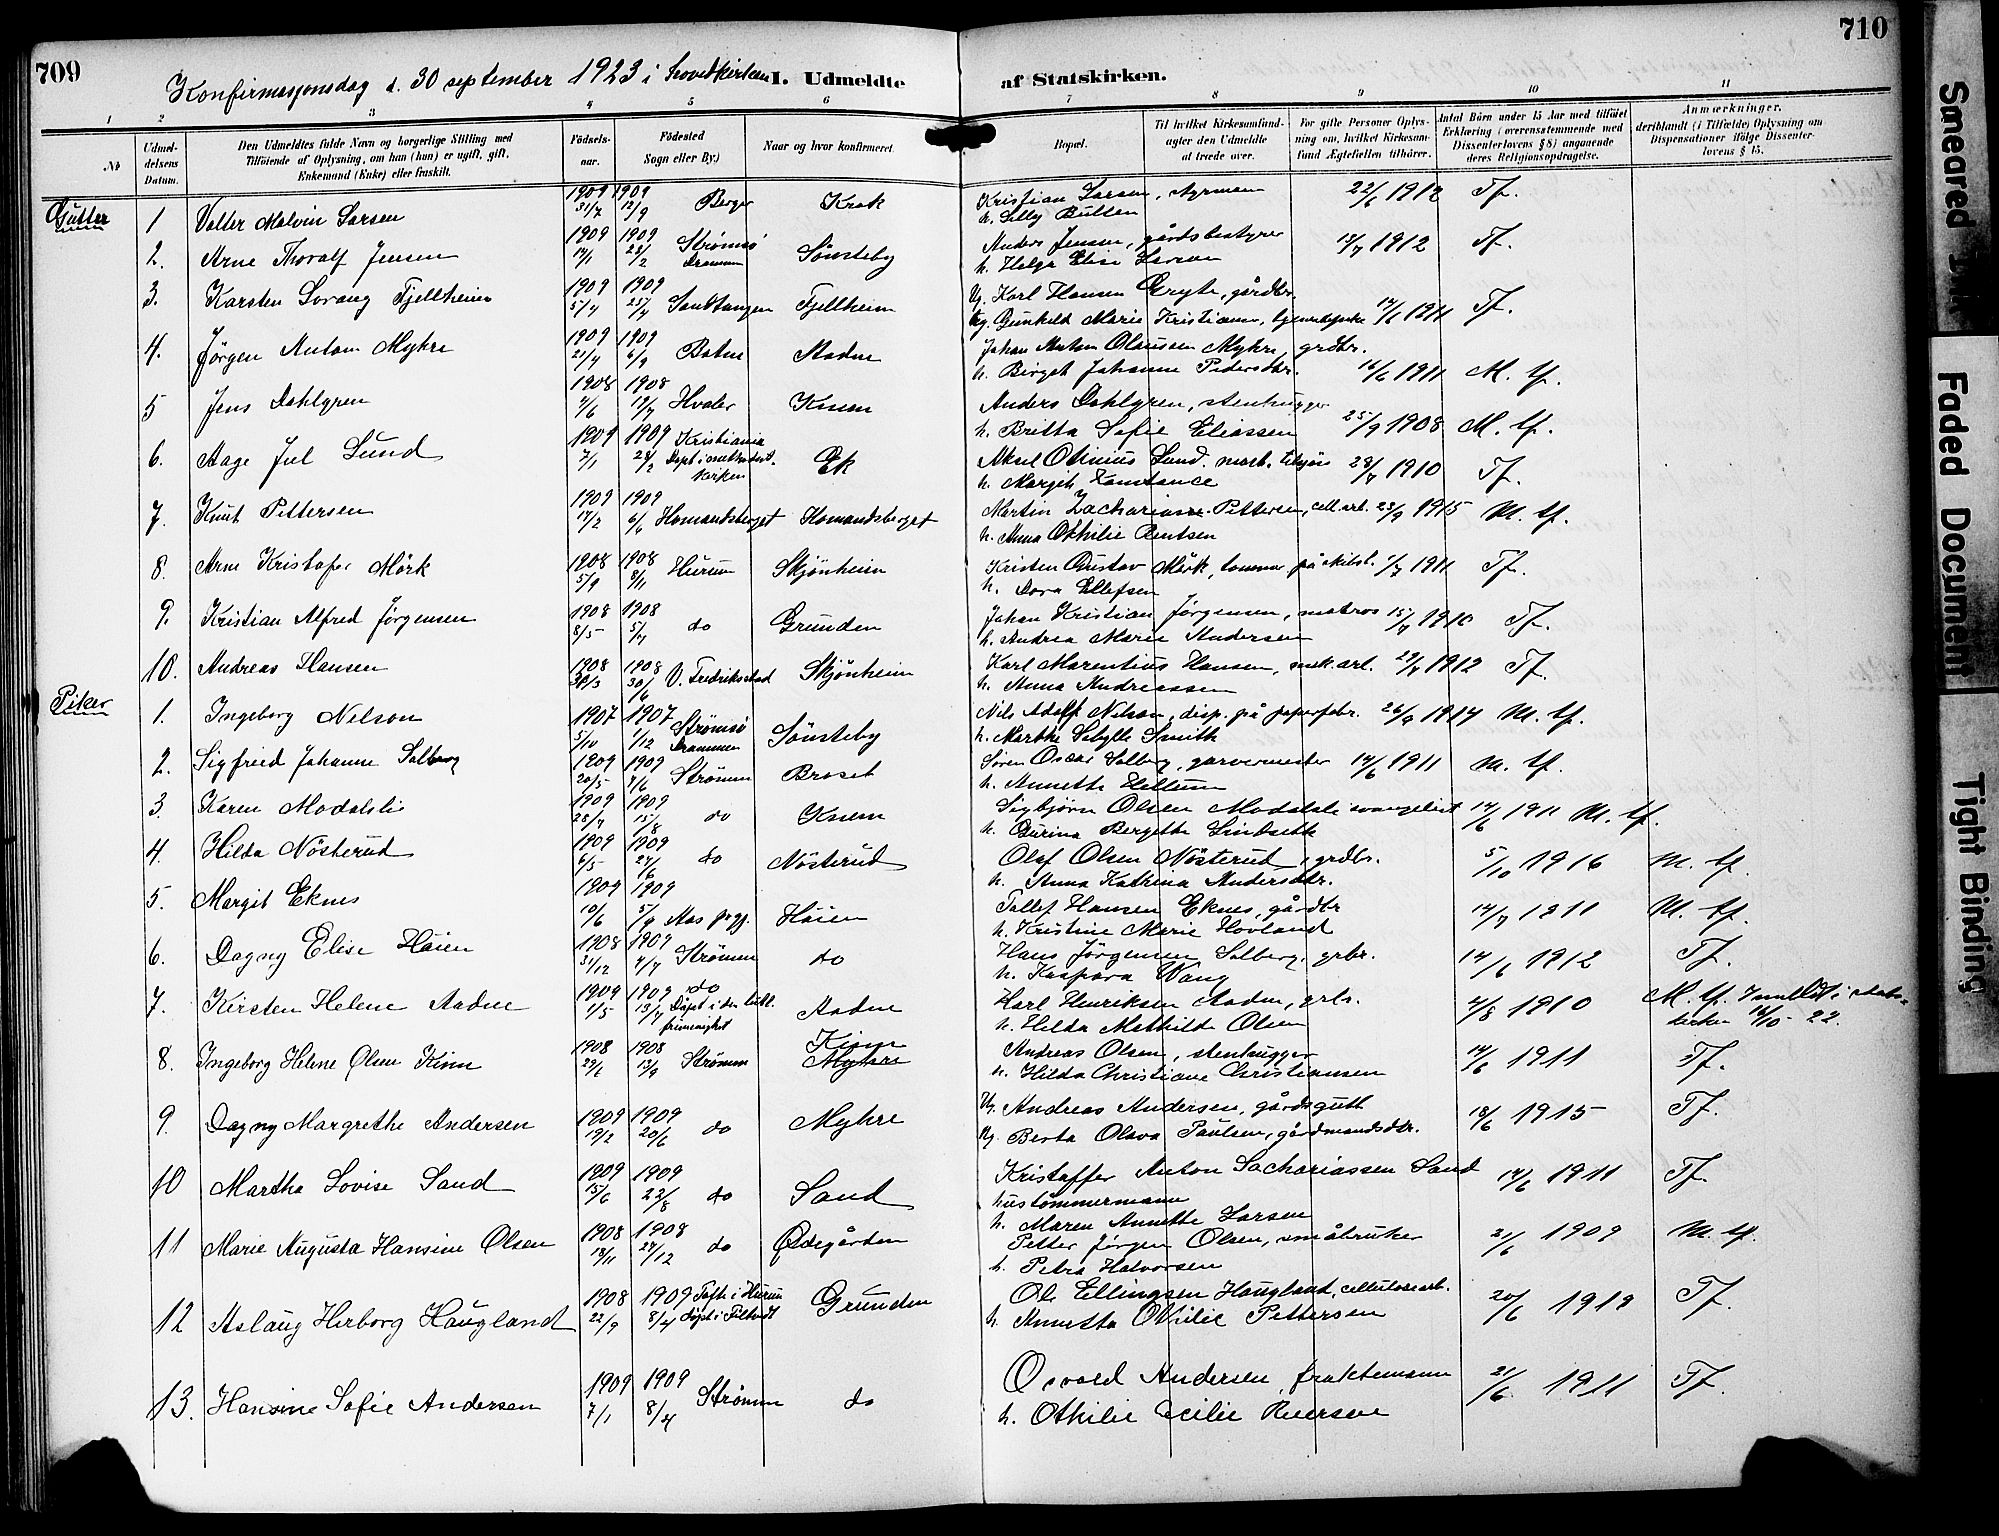 709
710
Konfirmasjonsdag d. 30 september 1923 i hovedkirken
I. Udmeldte af Statskirken.
1 2 3 4 5 6 7 8 9 10 11
No
Udmeldelsens Datum.
Den Udmeldtes fulde Navn og borgerlige Stilling med Tilføiende af Oplysning, om han (hun) er ugift, gift, Enkemand (Enke) eller fraskilt.
Fødselsaar.
Fødested Sogn eller By.)
Naar og hvor konfirmeret.
Bopæl.
Til hvilket Kirkesamfund agter den Udmeldte at træde over.
For gifte Personer Oplysning om, hvilket Kirkesamfund Ægtefællen tilhører.
Antal Børn under 15 Aar med tilføiet Erklæring (overensstemmende med Dissenterlovens § 8) angaaende deres Religionsopdragelse.
Anmærkninger, deriblandt (i Tilfælde) Oplysning om Dispensationer ifølge Dissenterlovens § 15.
Gutter
1 Valter Malvin Larsen 1909 31/7 1909 12/9 Berger Krok Kristian Larsen, styrmann h. Lilly Bulten 22/6 1912 Tf.
2. Arne Thoralf Jensen 1909 14/1 1909 28/2 Strømsø Drammen Sønsteby Anders Jensen, gårdsbestyrer h. Helga Elise Larsen 13/7 1912 Tf.
3. Karsten Sorang Fjellheim 1909 5/4 1909 25/4 Sandtangen Fjellheim Ug. Karl Hansen Gryte, gårdbr. Ug. Gunhild Marie Kristiansen, tjenestepike 14/6 1911 Tf.
4. Jørgen Anton Myhre 1909 21/7 1909 6/9 Botne Aadne Johan Anton Olaussen Myhre, grdbr. h. Birgit Johanne Pedersdtr. 16/6 1911 M. tf.
5 Jens Dahlgren 1908 4/6 1908 12/7 Hvaler Knem Anders Dahlgren, stenhugger h. Britta Sofie Eliassen 25/9 1908 M. tf.
6. Aage Jul Lund 1909 7/1 1909 28/2 Kristiania Døpt i metodistkirken Ek Aksel Otinius Lund. h. Margith Konstance 28/7 1910 Tf.
7. Knut Pettersen 1909 17/2 1909 6/6 Homandsberget Homandsberget Martin Zachariasse. Pettersen, cell. arb. h. Anna Othilie Bentsen 23/9 1915 M. tf.
8. Arne Kristofer Mørk 1908 5/9 1908 8/11 Hurum Skjønheim Kristen Gustav Mørk, h. Dora Ellefsen 1/7 1911 Tf.
9. Kristian Alfred Jørgensen 1908 8/5 1908 5/7 do Grunden Johan Kristian Jørgensen, matros h. Andrea Marie Andersen 15/7 1910 Tf.
10. Andreas Hansen 1908 30/3 1908 30/6 V. Fredrikstad Skjønheim Karl Marentius Hansen, mek. arb. h. Anna Andreassen 29/7 1912 Tf.
Piker
1. Ingeborg Nelson 1907 5/10 1907 1/12 Strømsø Drammen Sønsteby Nils Adolf Nilson, disp. på papirfabr. h. Marthe Sibylle Smith 26/9 1914 M. tf.
2. Sigfreid Johanne Solberg 1909 20/5 1909 4/6 Strømm Broset Søren Oscar Solberg, garvermester h. Annette Hellum 14/6 1911 M. tf.
3. Karen Modalsli 1909 28/7 1909 15/8 do Knem Sigbjørn Olsen Modalsli evangelist h. Gurina Bergitte Lindseth 14/6 1911 M. tf.
4. Hilda Nøsterud 1909 6/5 1909 27/6 do Nøsterud Olaf Olsen Nøsterud, grdbr. h. Anna Katrina Andersdtr. 5/10 1916 M. tf.
5. Margit Eknes 1909 10/6 1909 5/9 Aas prgj. Høien Tollef Hansen Eknes, gårdbr h. Kristine Marie Hovland 14/7 1911 M. tf.
6. Dagny Elise Høien 1908 31/12 1909 4/4 Strømm do Hans Jørgensen Solberg, grbr. h. Kaspara Wang 14/6 1912 Tf.
7. Kirsten Helene Aadne 1909 1/5 1909 13/7 do Døpt i den luth. frimenighet Aadne Karl Henriksen Aadne, grbr. h. Hilda Mathilde Olsen 4/8 1910 M. tf. Innmeldt i statskirken 16/10 - 22.
8. Ingeborg Helene Olsen Kinn 1908 29/6 1908 13/9 Strømm Kinn Myhre Andreas Olsen, stenhugger h. Hilda Christiane Christiansen 14/6 1911 Tf.
9. Dagny Margrethe Andersen 1909 19/2 1909 20/6 do Myhre Ug. Andreas Andersen, gårdsgutt Ug. Berta Olava Paulsen, gårdmandsdtr. 18/6 1915 Tf.
10 Martha Lovise Sand 1909 15/6 1909 22/8 do Sand Kristoffer Anton Sachariassen Sand hustømmermann h. Maren Annette Larsen 14/6 1911 Tf.
11 Marie Augusta Hansine Olsen 1908 13/11 1908 27/12 do Ødegården Petter Jørgen Olsen, småbruker h. Petra Halvorsen 21/6 1909 M. tf.
12 Aslaug Herborg Haugland 1908 22/9 1909 8/4 Tofte i Hurum døpt i Filtvedt Grunden Ole Ellingsen Haugland, cellulosearb. h. Annetta Otilie Pettersen 20/6 1912 Tf.
13. Hansine Sofie Andersen 1909 7/1 1909 8/4 Strømm do Osvald Andersen, fraktemann h. Othilie Cecilie Iversen 21/6 1911 Tf.
Smeared Ink
Faded Document
Tight Binding